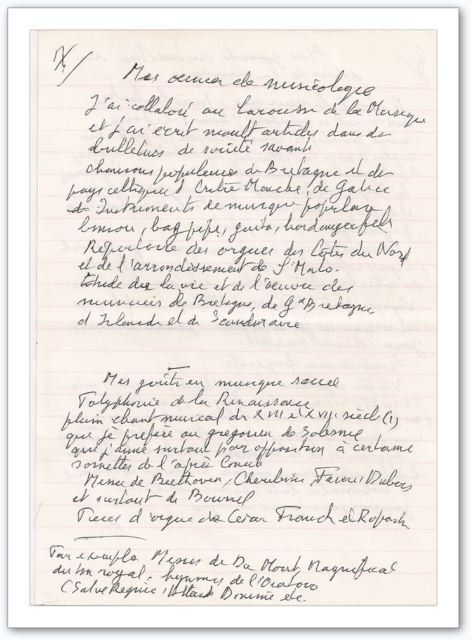 Mes oeuvres de musicologie
J'ai collaboré au Larousse de la Musique
et j'ai écrit moult articles dans des
bulletins de société savante
chansons populaires de Bretagne et des
pays celtiques d'Outre Manche, de Galice
Instruments de musique populaire
biniou, bag pipe, gaita, hardangerfele
Répertoire des orgues des Côtes du Nord
et de l'arrondissement de St Malo.
Etude de la vie et de l'oeuvre des
de Bretagne, de Gde Bretagne
d'Irlande et de Scandinavie
Mes goûts en musique sacrée
Polyphonie de la Renaissance
plain chant musical du XVII e XVIIIe siècle (1)
que je préfère au grégorien de Solesme
que j'aime surtout par opposition à certaine
sornettes de l'après Concile
Messes de Beethoven, Cherubini, Fauré, Dubois
et surtout de
Pièces d'orgue de César Franck et Ropartz
Par exemple Messes de Du Mont, Magnificat
du ton royal, hymnes de l'Oratoire
(Salve Regina, Domine etc.